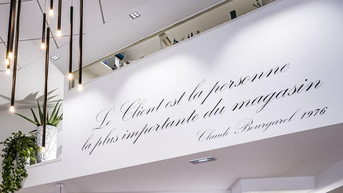 Le Client est la personne
la plus importante du magasin
Claude Bourgarel 1976